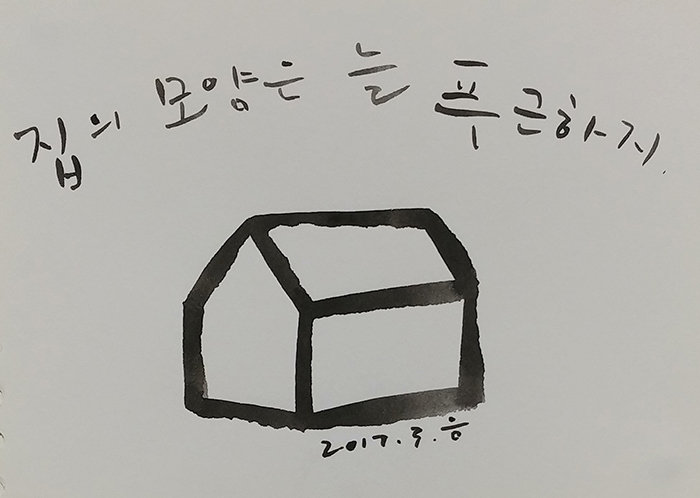 집의 모양은 늘 푸근하지.
2017.3.응